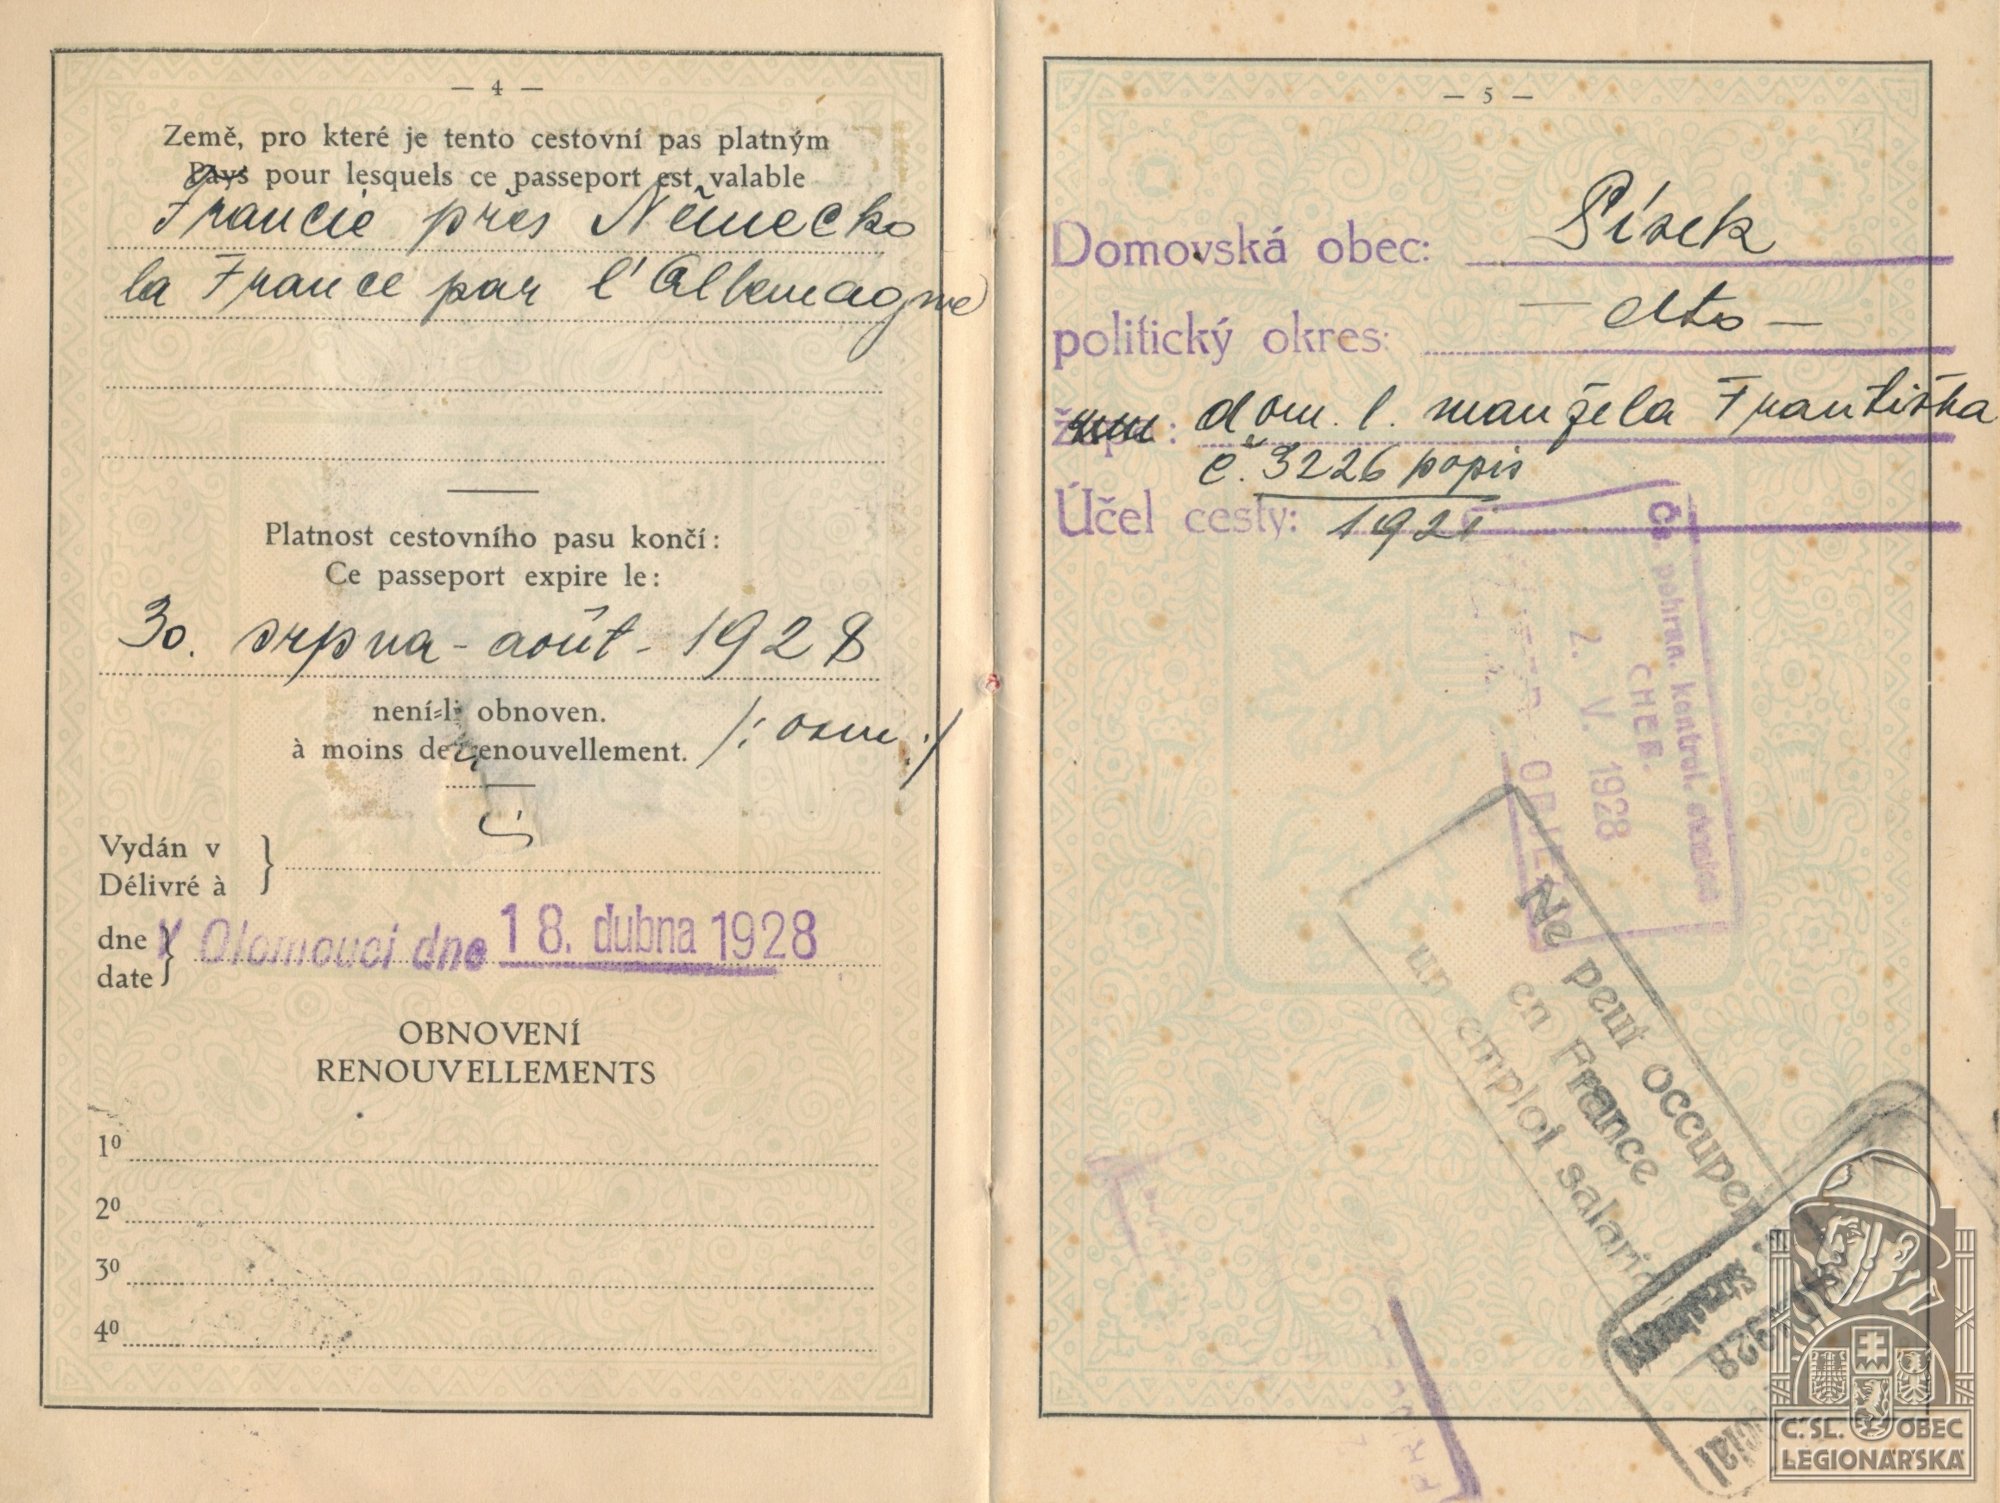 — 4 —
Země, pro které je tento cestovní pas platným
Pays pour lesquels ce passeport est valable
Francie přes Německo
la France par l'Allemagne
Platnost cestovního pasu končí:
Ce passeport expire le:
30. srpna - août - 1928
není-li obnoven.
à moins de renouvellement. /: osm :/
Vydán v
Délivré à
dne V Olomouci dne 18. dubna 1928
date
OBNOVENÍ
RENOUVELLEMENTS
1º
2º
3º
4º
— 5 —
Domovská obec: Písek
politický okres: — dtto —
: dom. l. manžela Františka
č. 3226 popis
Účel cesty: 1921
Čs. pohran. kontrol.
CHEB.
2. V. 1928
Ne peut occuper
en France
un emploi salarié
Strasbourg
1928
C.SL. OBEC
LEGIONÁŘSKÁ